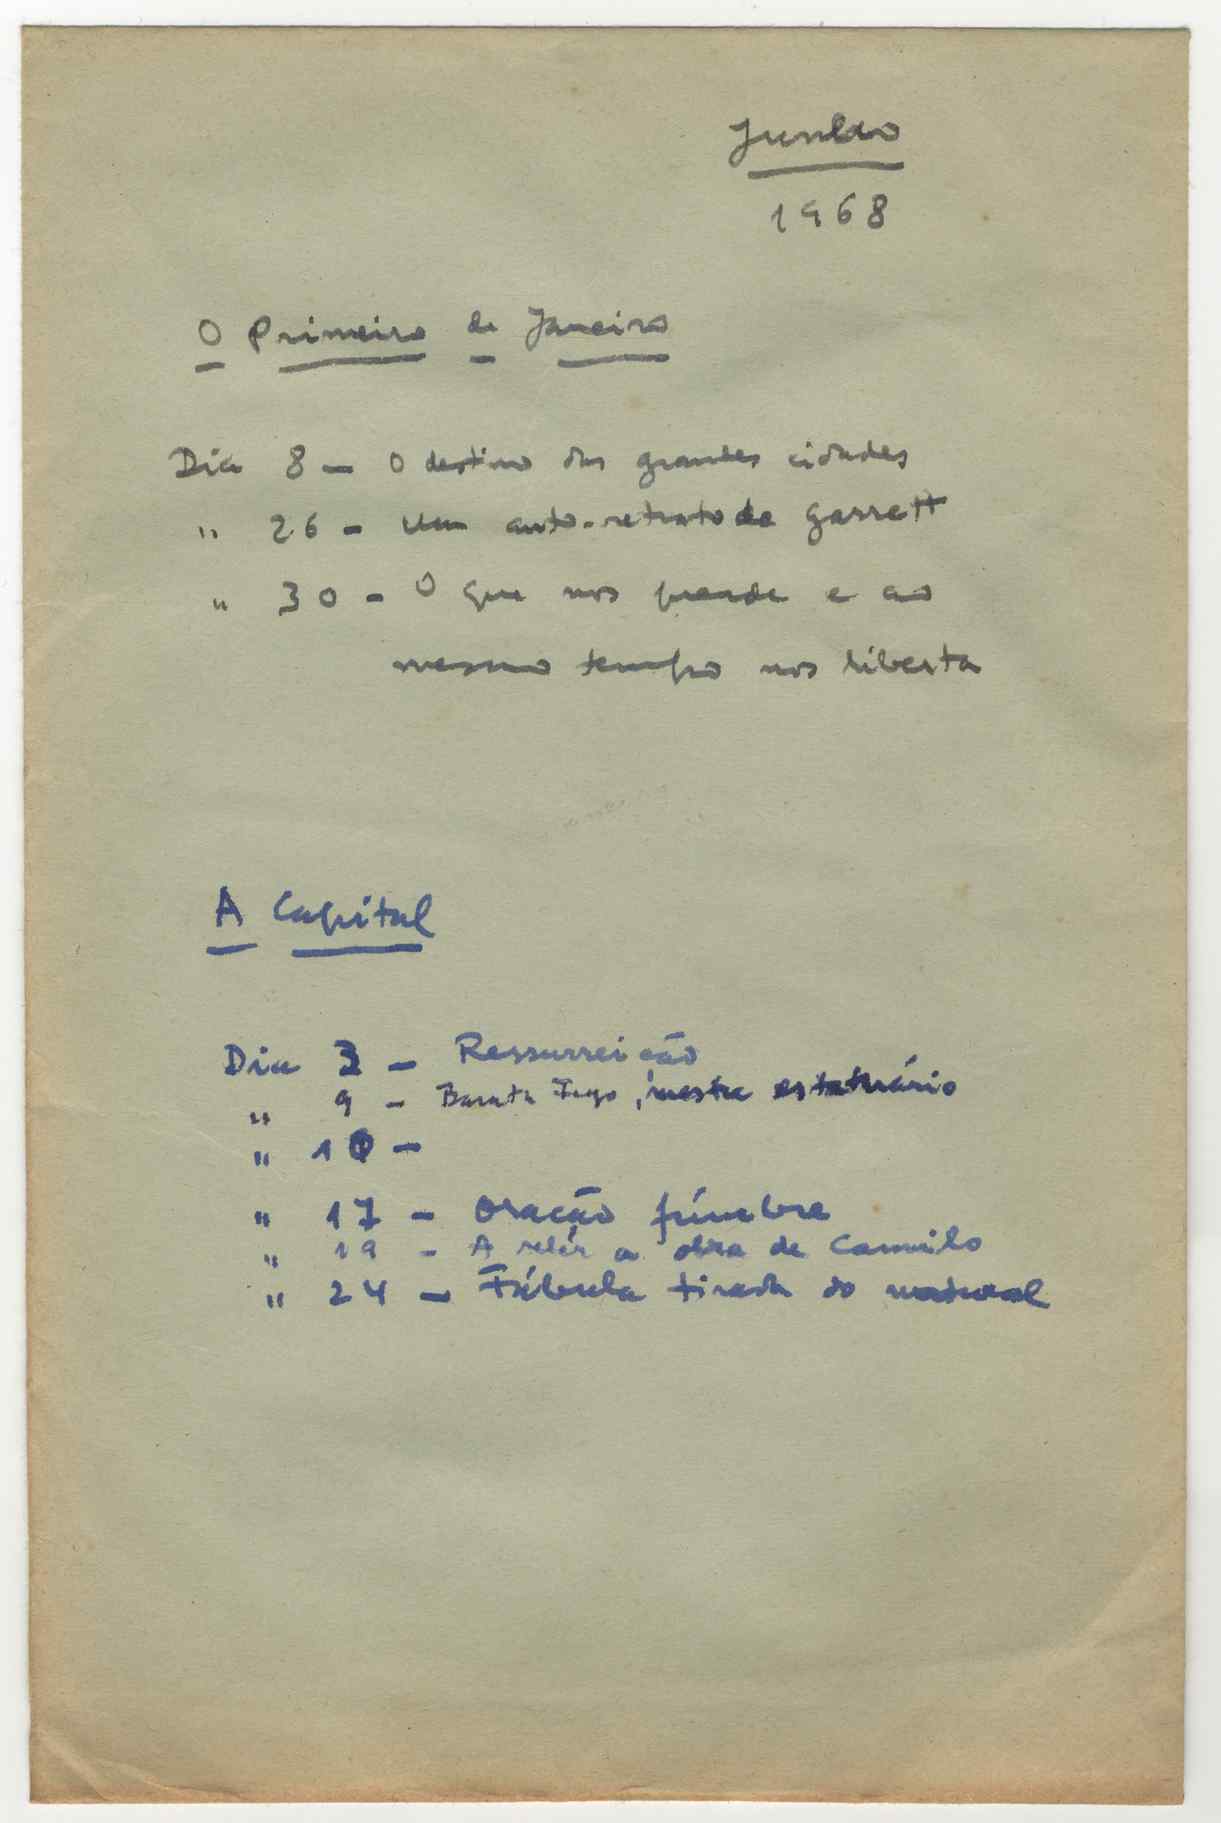 Junho
1968
O Primeiro de Janeiro
Dia 8 - O destino das grandes cidades
" 26 - Um auto-retrato de Garrett
" 30 - O que nos prende e ao
mesmo tempo nos liberta
A Capital
Dia 3 - Ressurreição
" 9 - Barata Feyo, mestre estatuário
" 10 -
" 17 - Oração fúnebre
" 19 - A relêr a obra de Camilo
" 24 - Fábula tirada do natural